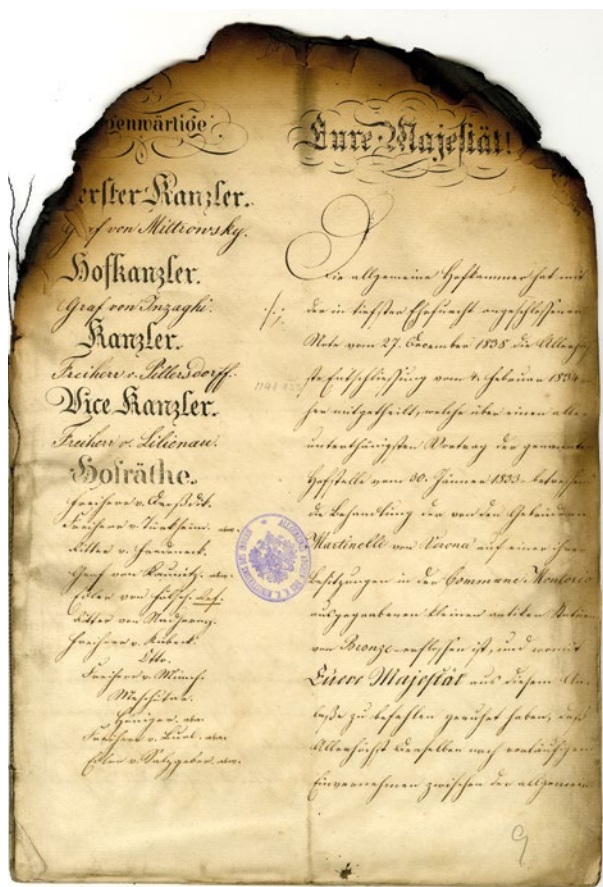 genwärtige
erster Kanzler.
Graf von Mittrowsky.
Hofkanzler.
Graf von Inzaghi.
Kanzler.
Freiherr v. Pillersdorff.
Vice Kanzler.
Freiherr v. Lilienau.
Hofräthe.
Freiherr v.
Freiherr v. Türkheim.
Ritter v.
Graf von Kaunitz.
Edler von
Ritter von
Freiherr v. Kübeck.
Otto.
Freiherr v. Münch.
Freiherr v. Buol.
Edler v. Salzgeber.
Eure Majestät!
Die allgemeine Hofkammer hat mit
der in tiefster Ehrfurcht angeschlossenen
Note vom 27. December 1838 die Allerhöch-
ste Entschließung vom 4. Februar 1834
her mitgetheilt, welche über einen aller
unterthänigsten Vortrag der genannten
Hofstelle vom 30. Jänner 1833 betreffend
die Behandlung der von den Gebrüdern
Martinelli von Verona auf einer ihrer
Besitzungen in der Commune Montorio
ausgegrabenen kleinen antiken Statuen
von Bronze erflossen ist, und womit
Euere Majestät aus diesem An-
laße zu befehlen geruhet haben, daß
Allerhöchst denselben nach vorläufigem
Einvernehmen zwischen der allgemeinen
9